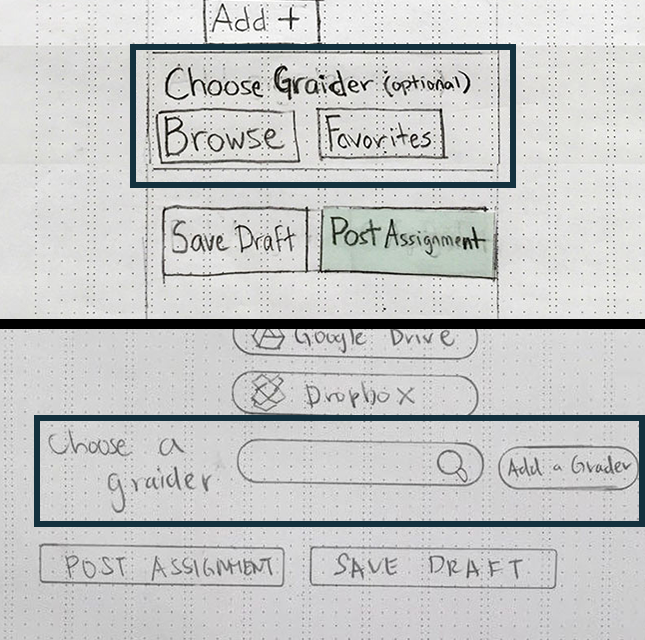 Add +
Choose Graider (optional)
Browse Favorites
Save Draft Post Assignment
Google Drive
Dropbox
Choose a
graider
Add a Grader
POST ASSIGNMENT SAVE DRAFT